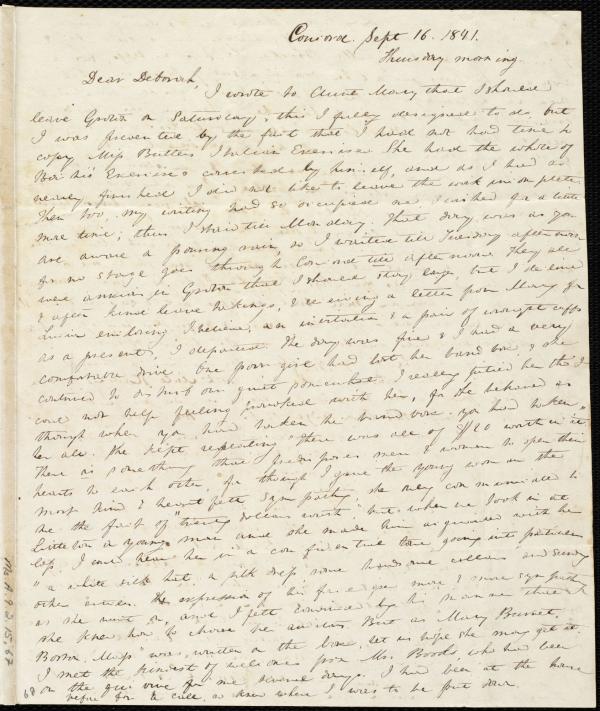 Concord. Sept 16. 1841.
Thursday morning.
Dear Deborah
I wrote to Aunt Mary that I should
leave Groton on Saturday, this I fully designed to do, but
I was prevented by the fact that I had not had time to
copy Miss Butler's Italian Exercises. She had the whole of
Bar his Exercises corrected by himself, and as I had so
nearly finished I did not like to leave the work incomplete
Then too, my writing had so occupied me, I wished for a little
more time; thus I staid till Monday. That day was as you
are aware a pouring rain, so I waited till Tuesday afternoon
for no stage goes through Concord till afternoon. They all
were anxious in Groton that I should stay longer, but I declined
& after kind leave takings, & receiving a letter from Mary for
Lucia enclosing I believe, an invitation & a pair of wrought cuffs
as a present, I departed. The day was fine & I had a very
comfortable drive. One poor girl had lost her band box & she
continued to disturb our quiet somewhat. I really pitied her tho' I
could not help feeling provoked with her, for she behaved as
though when you had taken the band box, you had taken
her all. She kept repeating "there was all of $20 worth in it"
There is something that predisposes men & women to open their
hearts to each other, for though I gave the young woman the
most kind & heartfelt sympathy, she only communicated to
me the fact of "twenty dollars worth" but when we took in at
Littleton a young man and she made him acquainted with her
loss, I could hear her in a confidential tone going into particulars
"a white silk hat, a silk dress some handsome collars" and sundry
other articles. The expression of his face grew more & more sympathetic
as she went on, and I felt convinced by his manner that
she knew how to choose her auditors. But as "Mary Barnet.
Boston. Mass" was written on the box, let us hope she may get it.
I met the kindest of welcomes from Mrs. Brooks, who had been
on the qui vive for me several days. I had been at the house
before for a call, so knew where I was to be put down
Ms. A. 9. 2. 15. 67
68